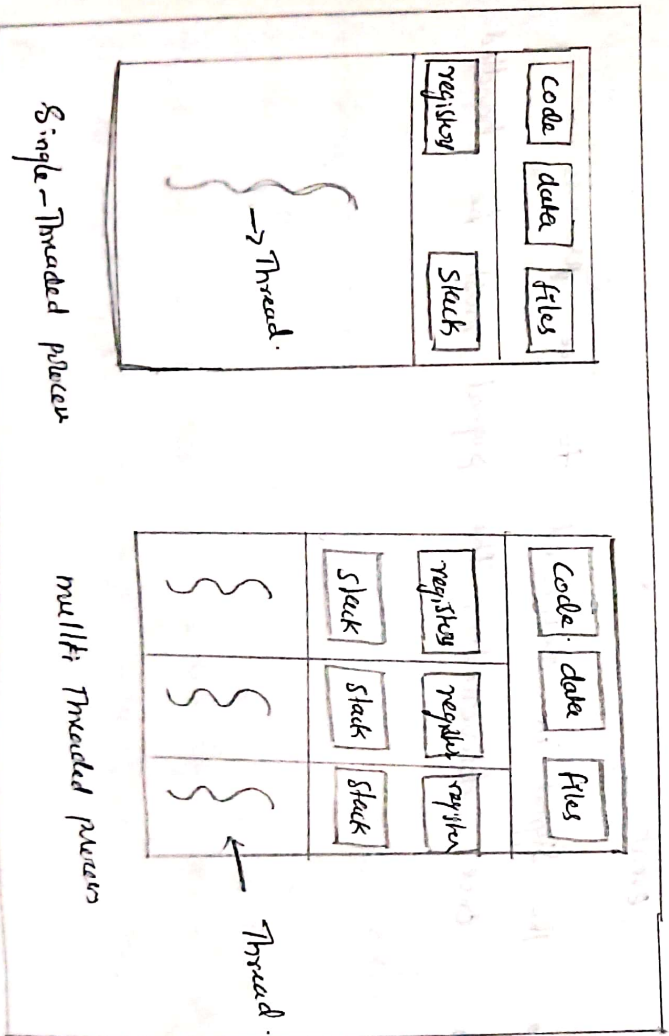 code data files
registory stack
→ Thread.
Single-Threaded process
Code. data files
registory register register
stack stack stack
Thread.
multi Threaded process